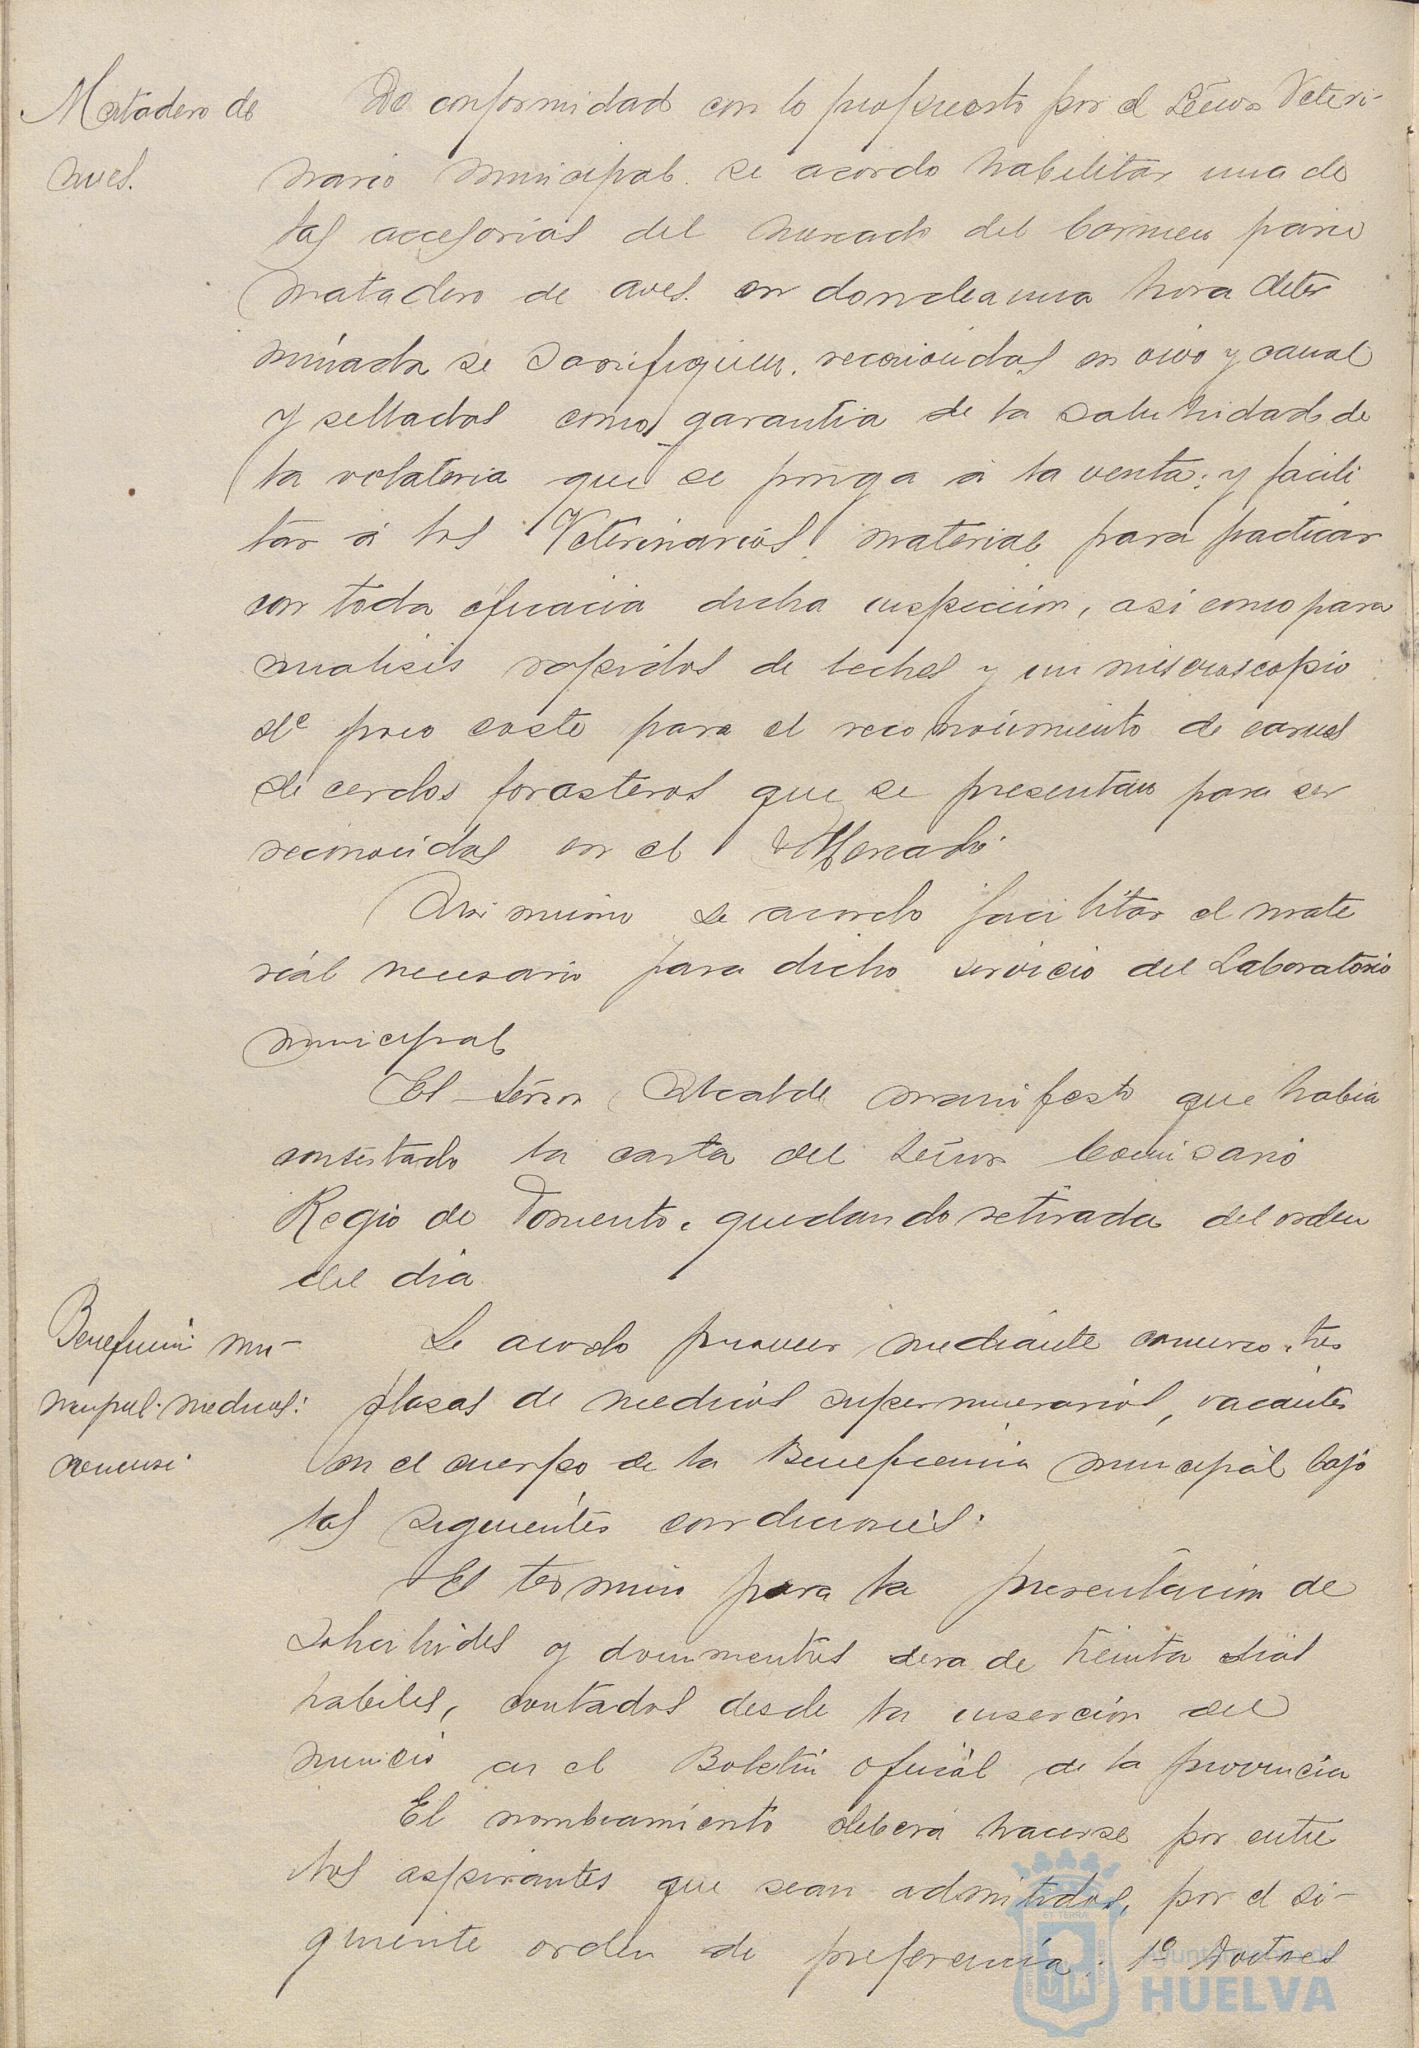 Matadero de
aves.
De conformidad con lo propuesto por el Señor Veteri-
nario municipal se acordo habilitar una de
las accesorias del mercado del Carmen para
matadero de aves en donde a una hora deter
minada se sacrifiquen, reconocidas en vivo y canal
y selladas como garantia de la salubridad de
la volateria que se ponga á la venta; y facili
tar á los Veterinarios material para practicar
con toda eficacia dicha inspeccion, asi como para
analisis rapidos de leches y un miscroscopio
de poco coste para el reconocimiento de carnes
de cerdos forasteros que se presentan para ser
reconocidas en el Mercado.
Asi mismo se acordo facilitar el mate
rial necesario para dicho servicio del Laboratorio
municipal
El Señor Alcalde manifesto que habia
contestado la carta del Señor Comisario
Regio de Fomento, quedando retirada del orden
del dia
Beneficencia mu-
nicipal. medicos:
concurso.
Se acordo proveer mediante concurso, tres
plazas de medicos supernumerarios, vacantes
en el cuerpo de la Beneficencia municipal bajo
las siguientes condiciones.
El termino para la presentacion de
solicitudes y documentos sera de treinta dias
habiles, contados desde la inserción del
anuncio en el Boletin oficial de la provincia
El nombramiento deberá hacerse por entre
los aspirantes que sean admitidos, por el si-
guiente orden de preferencia: 1º Doctores
Ayuntamiento de
HUELVA